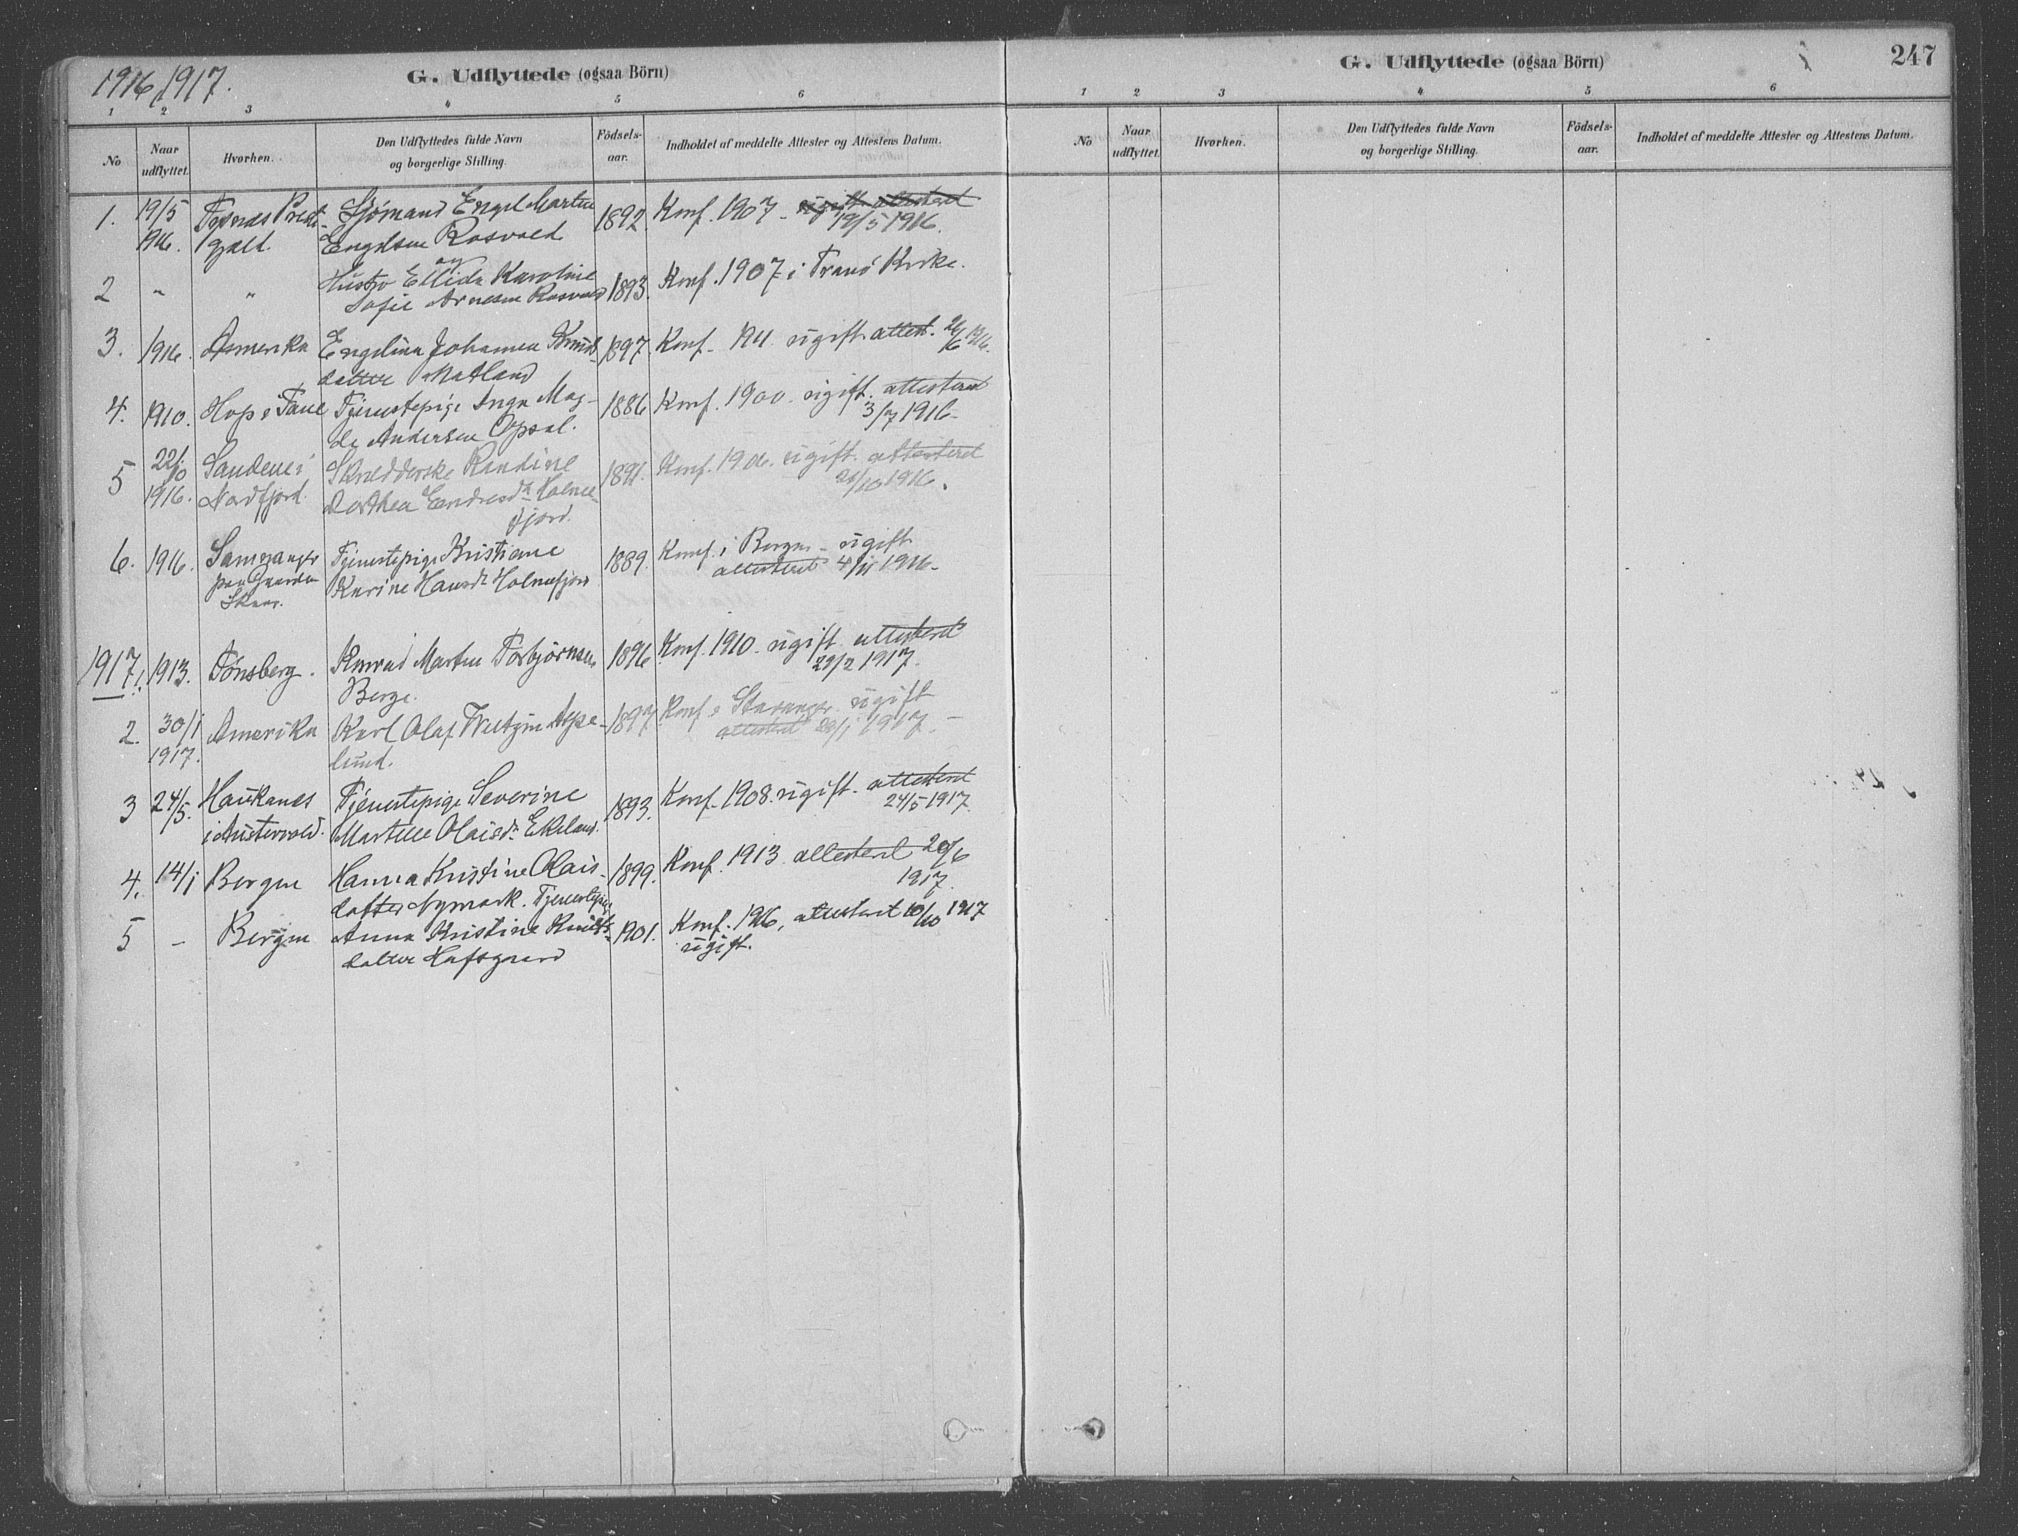 1916, 1917.
G. Udflyttede (ogsaa Börn)
1 2 3 4 5 6
No
Naar udflyttet.
Hvorhen.
Den Udflyttedes fulde Navn og borgerlige Stilling.
Födsels-aar.
Indholdet af meddelte Attester og Attestens Datum.
1. 19/5 Tysnæs Præste- Sjömand Engel Martin 1892 Konf. 1907 - ugift attesteret
1916. gjæld. Engelsen Rosvold 19/5 1916.
og
2 " " Hustro Ellida Karoline 1893. Konf. 1907 i Tranö Kirke.
Sofie Arnesen Rosvold
3. 1916. Amerika Engelina Johanna Knuds- 1897. Konf. 1911 ugift attest. 26/6 1916.
datter Matland
4. 1910. Hop i Fane Tjenestepige Inga Mag- 1886 Konf. 1900. ugift. attesteret
da Andersen Opsal. 3/7 1916.
5 22/10 Sandene i Skrædderske Randine 1891. Konf. 1906. ugift. attesteret
1916. Nordfjord. Dorthea Endresdtr Holme- 21/10 1916.
fjord.
6. 1916. Samnanger Tjenestepige Kristiane 1889. Konf. i Bergen - ugift
paa Gaarden Karine Hansdtr Holmefjord attesteret 4/11 1916.
Skaar.
1917. 1. 1913. Tönsberg. Konrad Martin Torbjörnsen 1896 Konf. 1910. ugift. attesteret
Berge. 29/2 1917.
2. 30/1 Amerika Karl Olaf Aspe- 1897 Konf. i Stavanger. ugift
1917. lund. attesteret 1917.
3 24/5. Haukanes Tjenestepige Severine 1893. Konf. 1908. ugift. attesteret
i Austevold. Martelle Olaisdr. Ekeland. 24/5 1917.
4. 14/1 Bergen Hanna Kristine Olais- 1899. Konf. 1913. attesteret 20/6
datter Nymark. Tjenestepige 1917.
5 - Bergen Anna Kristine Knuds- 1901. Konf. 1916, attesteret 10/10 1917
datter Hafsgaard ugift.
G. Udflyttede (ogsaa Börn)
247
1 2 3 4 5 6
No
Naar udflyttet.
Hvorhen.
Den Udflyttedes fulde Navn og borgerlige Stilling.
Födsels-aar.
Indholdet af meddelte Attester og Attestens Datum.